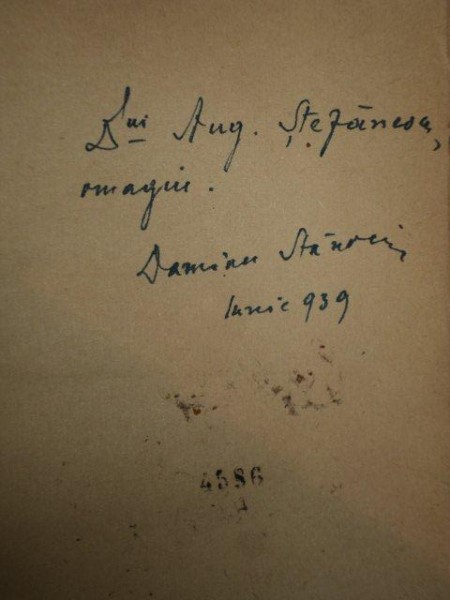 Dlui Aug. Ștefănescu,
omagiu.
Damian Stănoiu
Iunie 939
4586